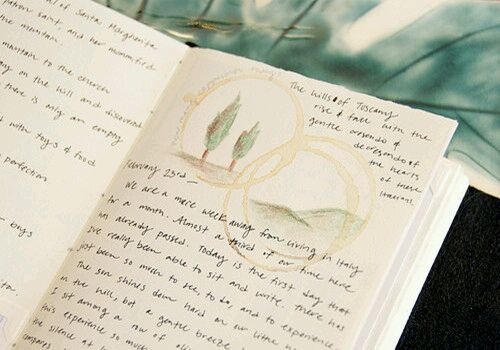 of Santa Margherita
patron saint, and her mummified
the mountain.
mountain to the church
on the hill and discovered
there is only an empty
with toys & food
perfection
boys
The hills of Tuscany
rise & fall with the
gentle cresendo &
decresendo of
the hearts
of these
Italians.
February 23rd —
We are a mere week away from living in Italy
for a month. Almost a third of our time here
has already passed. Today is the first day that
I've really been able to sit and write. There has
just been so much to see, to do, and to experience.
The sun shines down hard on our little
in the hill, but a gentle breeze
I sit among a row of
this experience so much
the silence at
compares